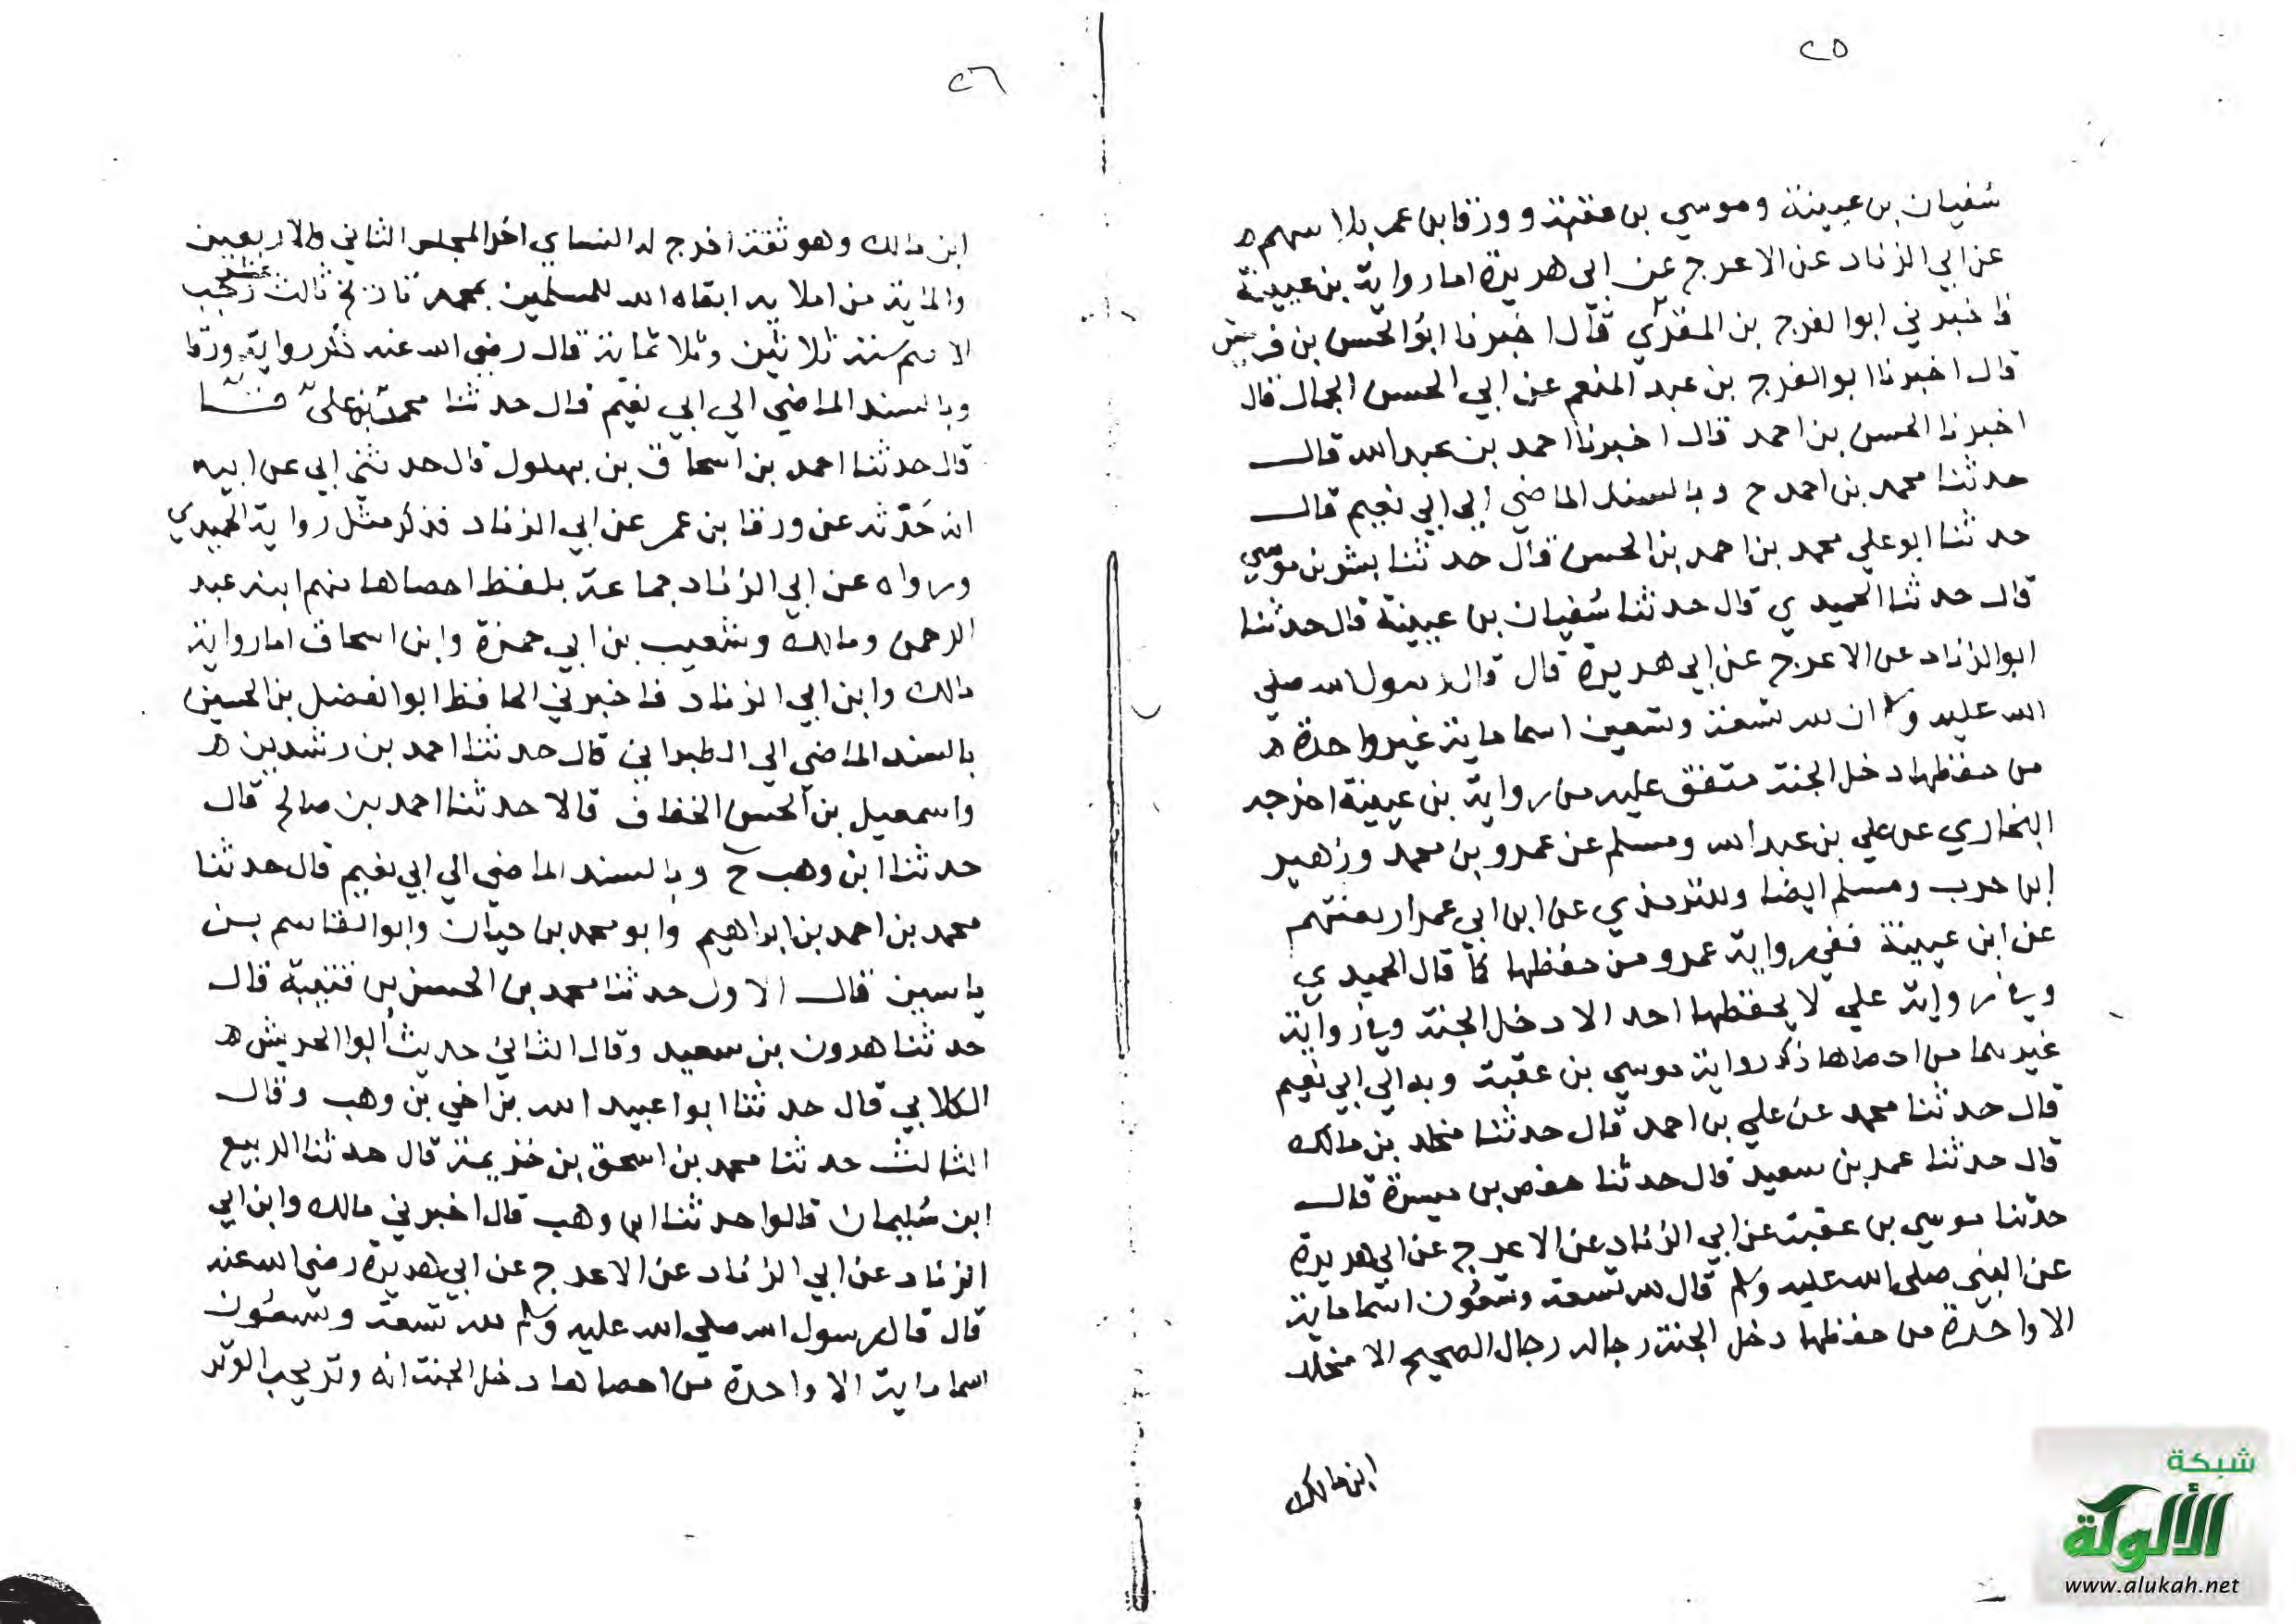 ٢٥
سفيان بن عيينة وموسى بن عقبة وورقا بن عمر باسهم ه
عن ابي الزناد عن الاعرج عن ابي هريرة اما رواية بن عيينة
فاخبرني ابوالفرج بن المقري قال اخبرنا ابوالحسن بن قريش
قال اخبرنا ابوالفرج بن عبد المنعم عن ابي الحسن الجمال قال
اخبرنا الحسن بن احمد قال اخبرنا احمد بن عبدالله قال
حدثنا محمد بن احمد ح وبالسند الماضي الي ابي نعيم قال
حدثنا ابوعلي محمد بن احمد بن الحسن قال حدثنا بشر بن موسي
قال حدثنا الحميدي قال حدثنا سفيان بن عيينة قال حدثنا
ابوالزناد عن الاعرج عن ابي هريرة قال قال رسول الله صلي
الله عليه وسلم ان لله تسعة وتسعين اسما ماية غير واحدة ه
من حفظها دخل الجنة متفق عليه من رواية بن عيينة اخرجه
البخاري عن علي بن عبدالله ومسلم عن عمرو بن محمد وزهير
ابن حرب ومسلم ايضا وللترمذي عن ابن ابي عمر اربعتهم
عن ابن عيينة ففي رواية عمرو من حفظها كما قال الحميدي
وفي رواية علي لا يحفظها احد الا دخل الجنة وفي رواية
غيرهما من احصاها ذكر رواية موسي بن عقبة وبه الي ابي نعيم
قال حدثنا محمد عن علي بن احمد قال حدثنا مخلد بن مالك
قال حدثنا عمر بن سعيد قال حدثنا حفص بن ميسرة قال
حدثنا موسي بن عقبة عن ابي الزناد عن الاعرج عن ابي هريرة
عن النبي صلي الله عليه وسلم قال لله تسعة وتسعون اسما ماية
الا واحدة من حفظها دخل الجنة رجاله رجال الصحيح الا مخلد
ابن مالك
٢٦
ابن مالك وهو ثقة اخرج له النساي اخر المجلس الثاني والاربعين
والماية من املايه ابقاه الله للمسلمين بمحمد تاريخ ثالث رجب
سنة ثلاثين وثلاثماية قال رضي الله عنه ذكر رواية ورقا
وبالسند الماضي الي ابي نعيم قال حدثنا محمد بن علي
قال حدثنا احمد بن اسحاق بن بهلول قال حدثني ابي عن ابيه
انه حدثه عن ورقا بن عمر عن ابي الزناد فذكر مثل رواية الحميدي
ورواه عن ابي الزناد جماعة بلفظ احصاها منهم ابنه عبد
الرحمن ومالك وشعيب بن ابي حمزة وابن اسحاق اما رواية
مالك وابن ابي الزناد فاخبرني الحافظ ابوالفضل بن الحسين
بالسند الماضي الي الطبراني قال حدثنا احمد بن رشدين ه
واسمعيل بن الحسن الخفاف قالا حدثنا احمد بن صالح قال
حدثنا ابن وهب ح وبالسند الماضي الي ابي نعيم قال حدثنا
محمد بن احمد بن ابراهيم وابو محمد بن حيان وابوالقاسم بن
ياسين قال الاول حدثنا محمد بن الحسن بن قتيبة قال
حدثنا هرون بن سعيد وقال الثاني حديث ابوالحريش ه
الكلابي قال حدثنا ابواعبيد الله بن اخي بن وهب وقال
الثالث حدثنا محمد بن اسحق بن خزيمة قال حدثنا الربيع
ابن سليمان قالوا حدثنا ابن وهب قال اخبرني مالك وابن ابي
الزناد عن ابي الزناد عن الاعرج عن ابي هريرة رضي الله عنه
قال قال رسول الله صلي الله عليه وسلم لله تسعة وتسعون
اسما ماية الا واحدة من احصاها دخل الجنة انه وتر يحب الوتر
شبكة
الألوكة
www.alukah.net